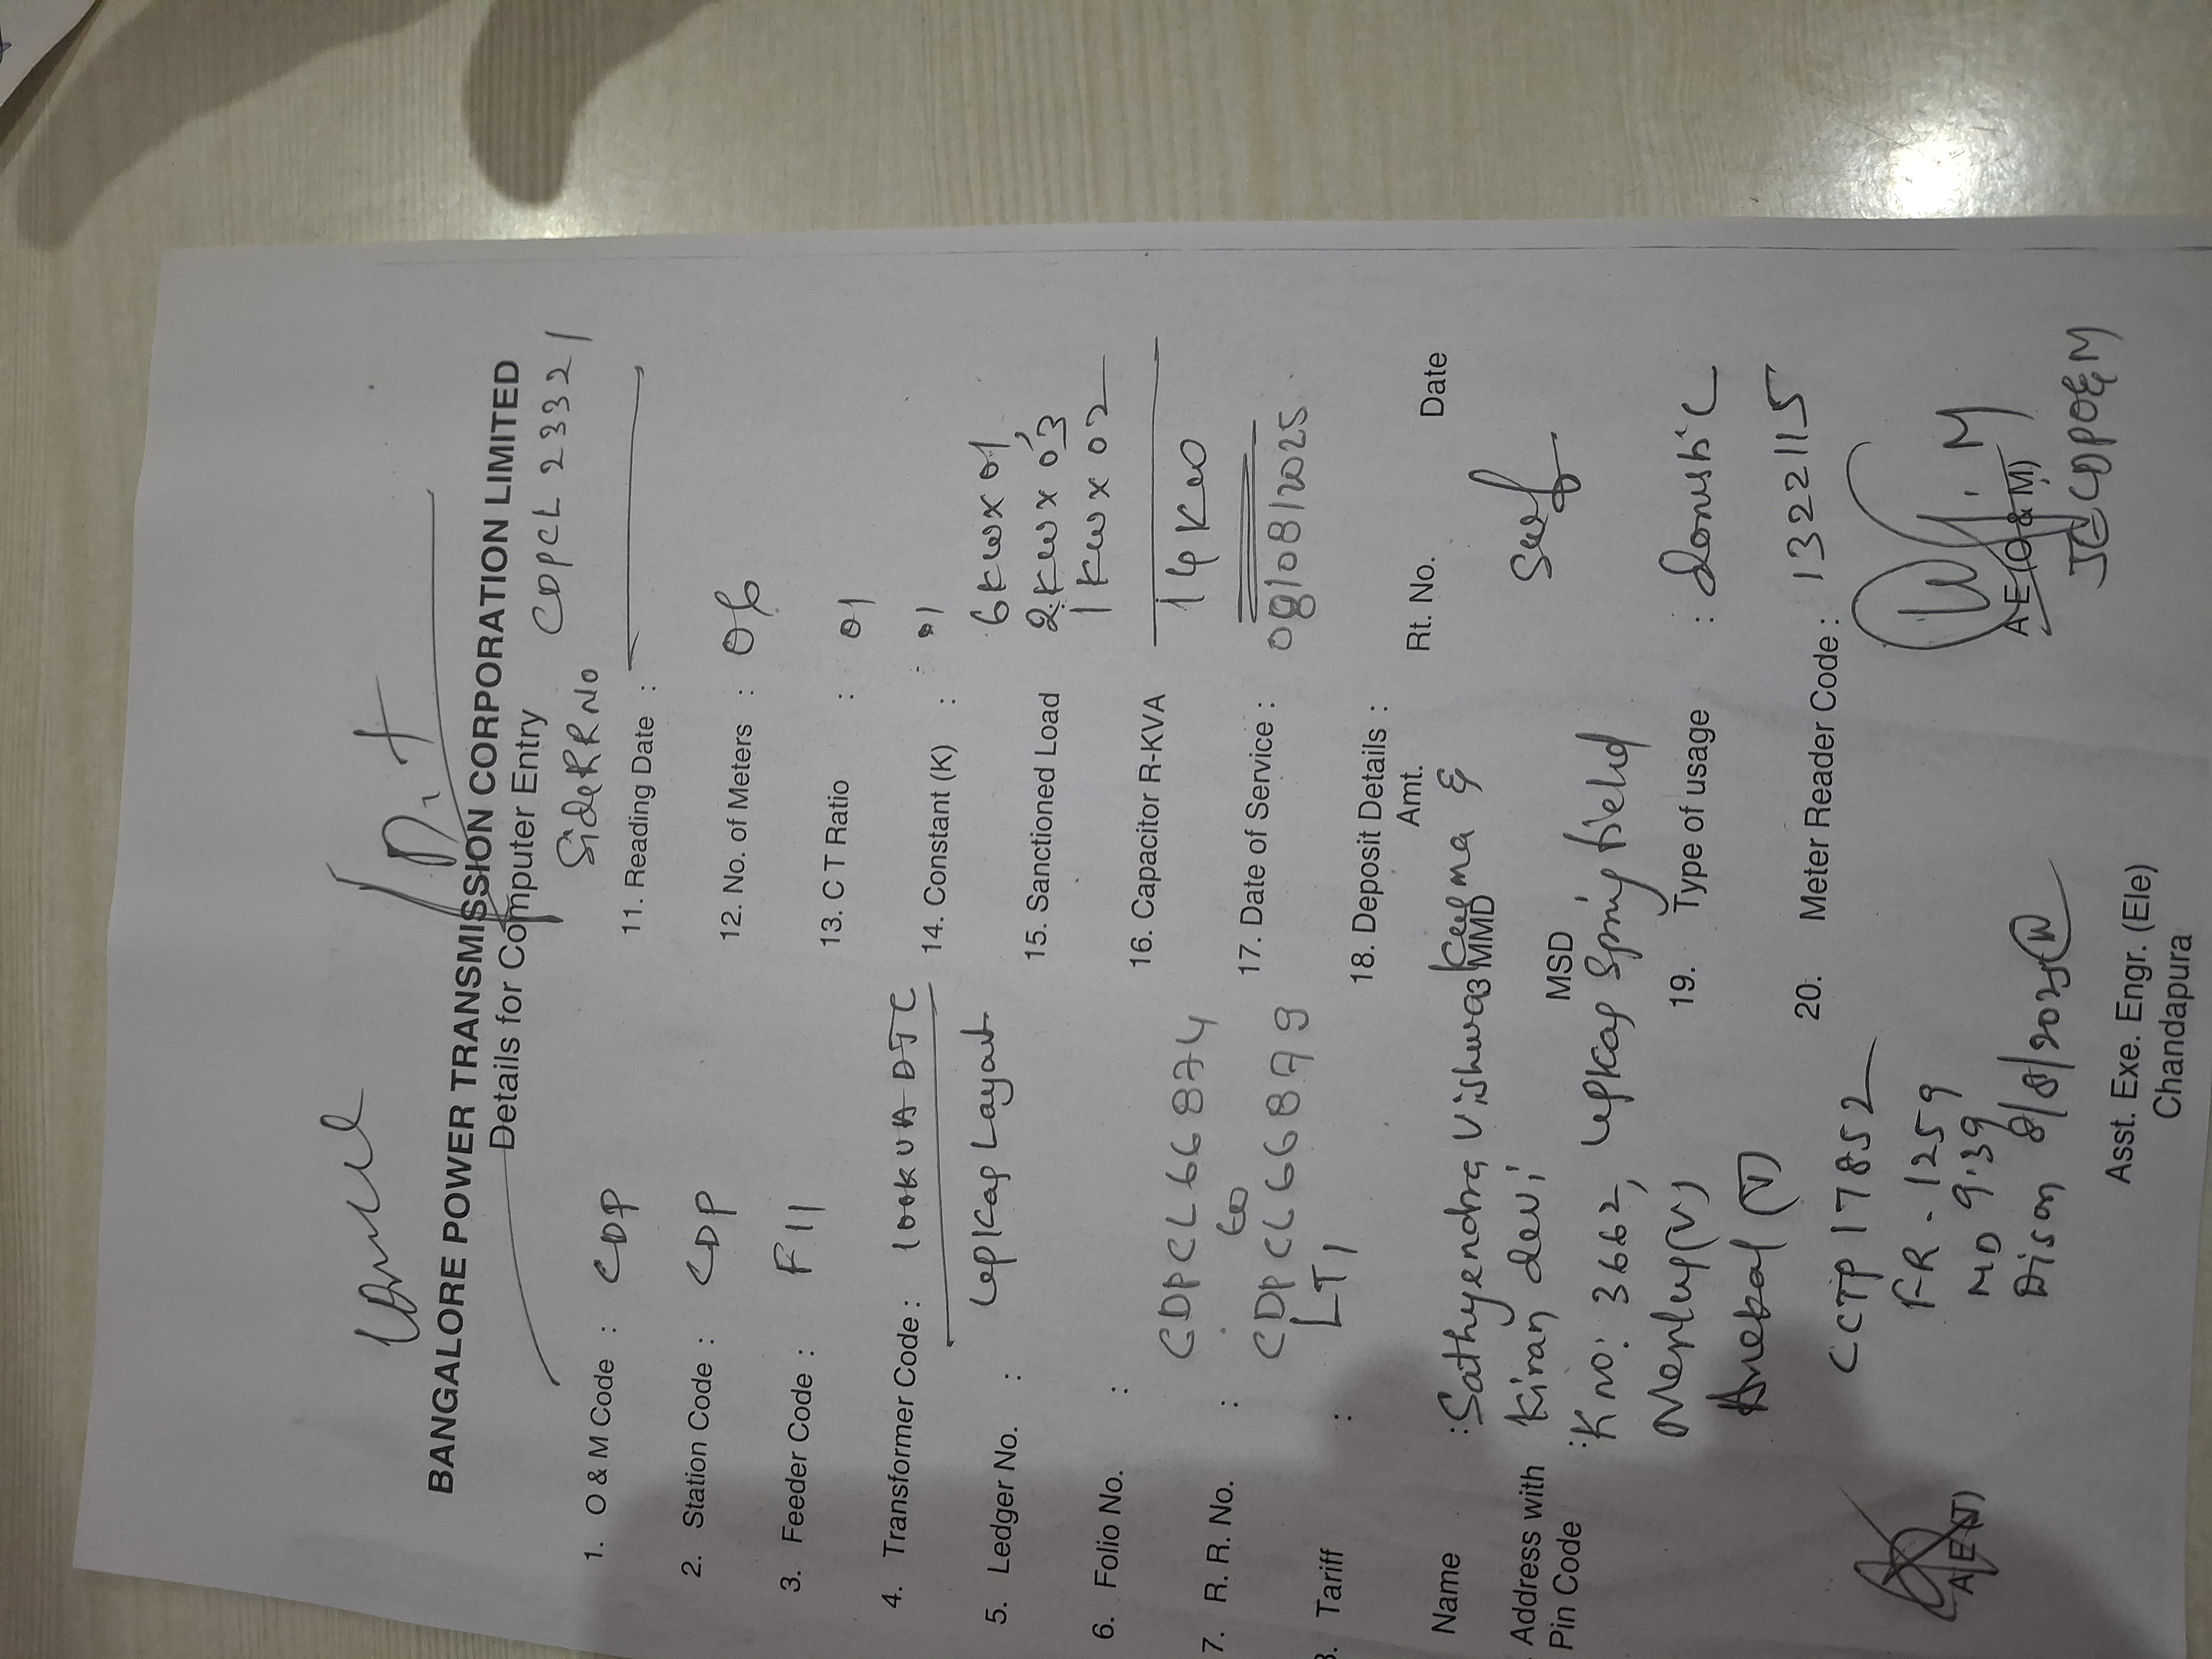 BANGALORE POWER TRANSMISSION CORPORATION LIMITED
Details for Computer Entry
Side RR No CDPCL 23321
1. O & M Code : CDP
2. Station Code : CDP
3. Feeder Code : F11
4. Transformer Code : 100KVA DTC
Lepkap Layout
5. Ledger No. :
6. Folio No. :
7. R. R. No. : CDPCL66874
to
CDPCL66879
Tariff : LT1
Name : Sathyendra Vishwa Kerma &
Kiran devi
Address with
Pin Code : K no: 3662, Lepkap Spring field
Anekal (T)
11. Reading Date :
12. No. of Meters : 06
13. C T Ratio : 01
14. Constant (K) : 01
15. Sanctioned Load 6kw x 01
2kw x 03
1kw x 02
14kw
16. Capacitor R-KVA
17. Date of Service : 08/08/2025
18. Deposit Details :
Amt. Rt. No. Date
3 MMD
MSD
19. Type of usage :
20. Meter Reader Code : 1322115
CCTP 17852
FR - 1259
MD 9.39
8/8/2025
A E (O & M)
Asst. Exe. Engr. (Ele)
Chandapura